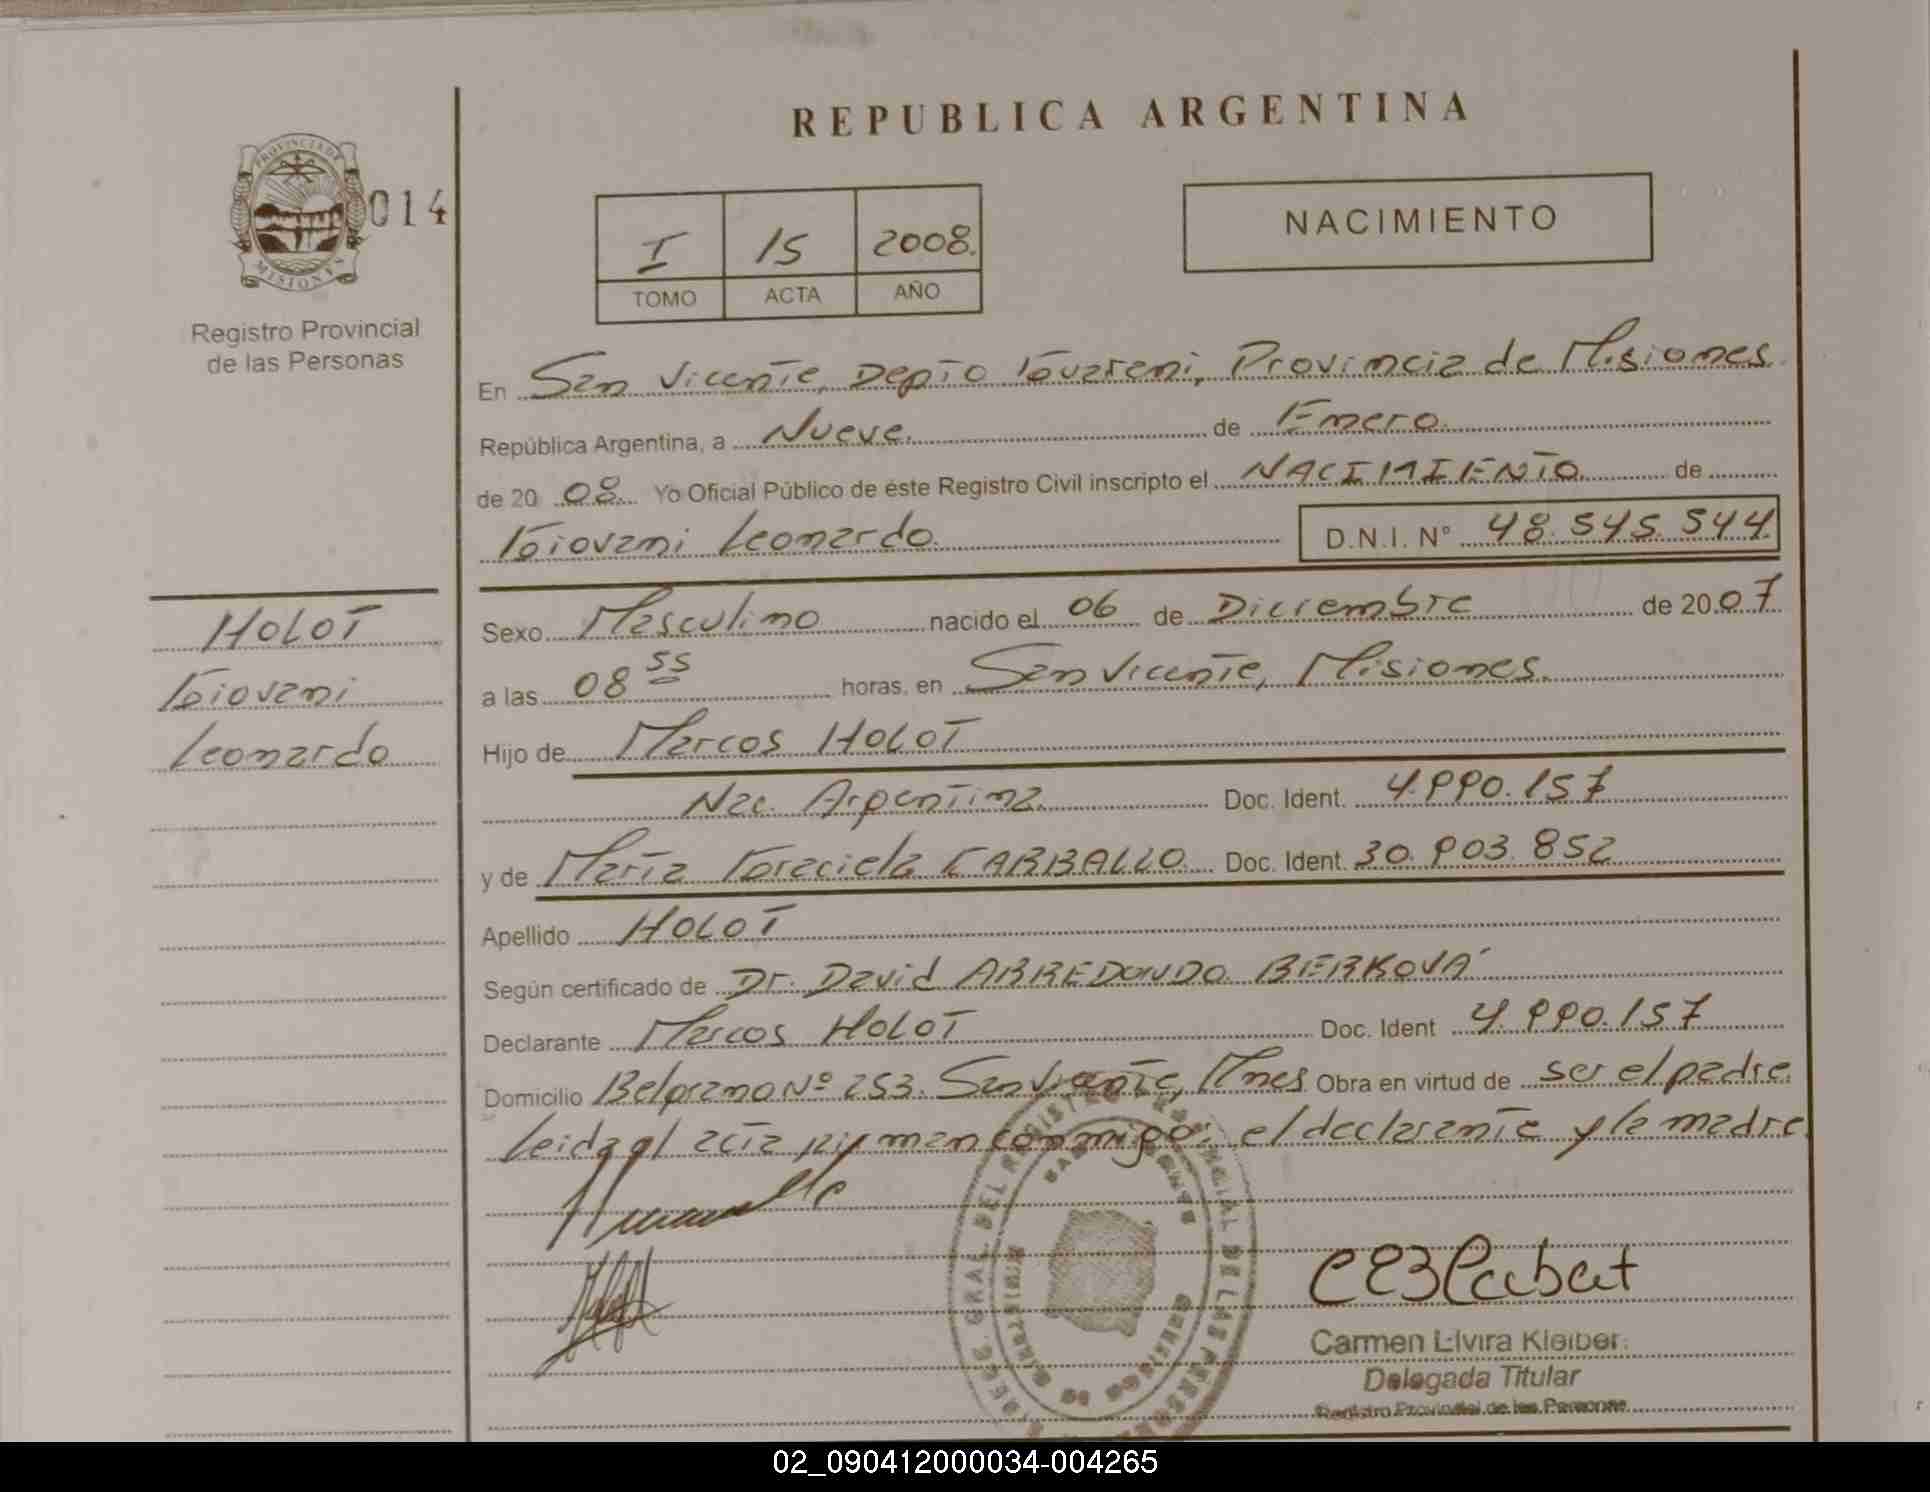 REPUBLICA ARGENTINA
PROVINCIA DE
MISIONES
014
Registro Provincial
de las Personas
I 15 2008.
TOMO ACTA AÑO
NACIMIENTO
En San Vicente, Depto Guarani, Provincia de Misiones.
República Argentina, a Nueve. de Enero.
de 20 08. Yo Oficial Público de este Registro Civil inscripto el NACIMIENTO. de
Giovani Leonardo.
D.N.I. Nº 48.545.544
HOLOT
Giovani
Leonardo
Sexo Masculino nacido el 06 de Diciembre de 20 07
a las 08 55 horas, en San Vicente, Misiones.
Hijo de Marcos HOLOT
Nac. Argentina. Doc. Ident. 4.990.157
y de María Graciela CARBALLO Doc. Ident. 30.903.852
Apellido HOLOT
Según certificado de Dr. David ARREDONDO BERKOVA
Declarante Marcos HOLOT Doc. Ident 4.990.157
Domicilio Belgrano Nº 253. San Vicente, Mnes Obra en virtud de ser el padre.
Leida el acta firman conmigo: el declarante y la madre.
Carmen Elvira Kleiber
Delegada Titular
Registro Provincial de las Personas
02_090412000034-004265